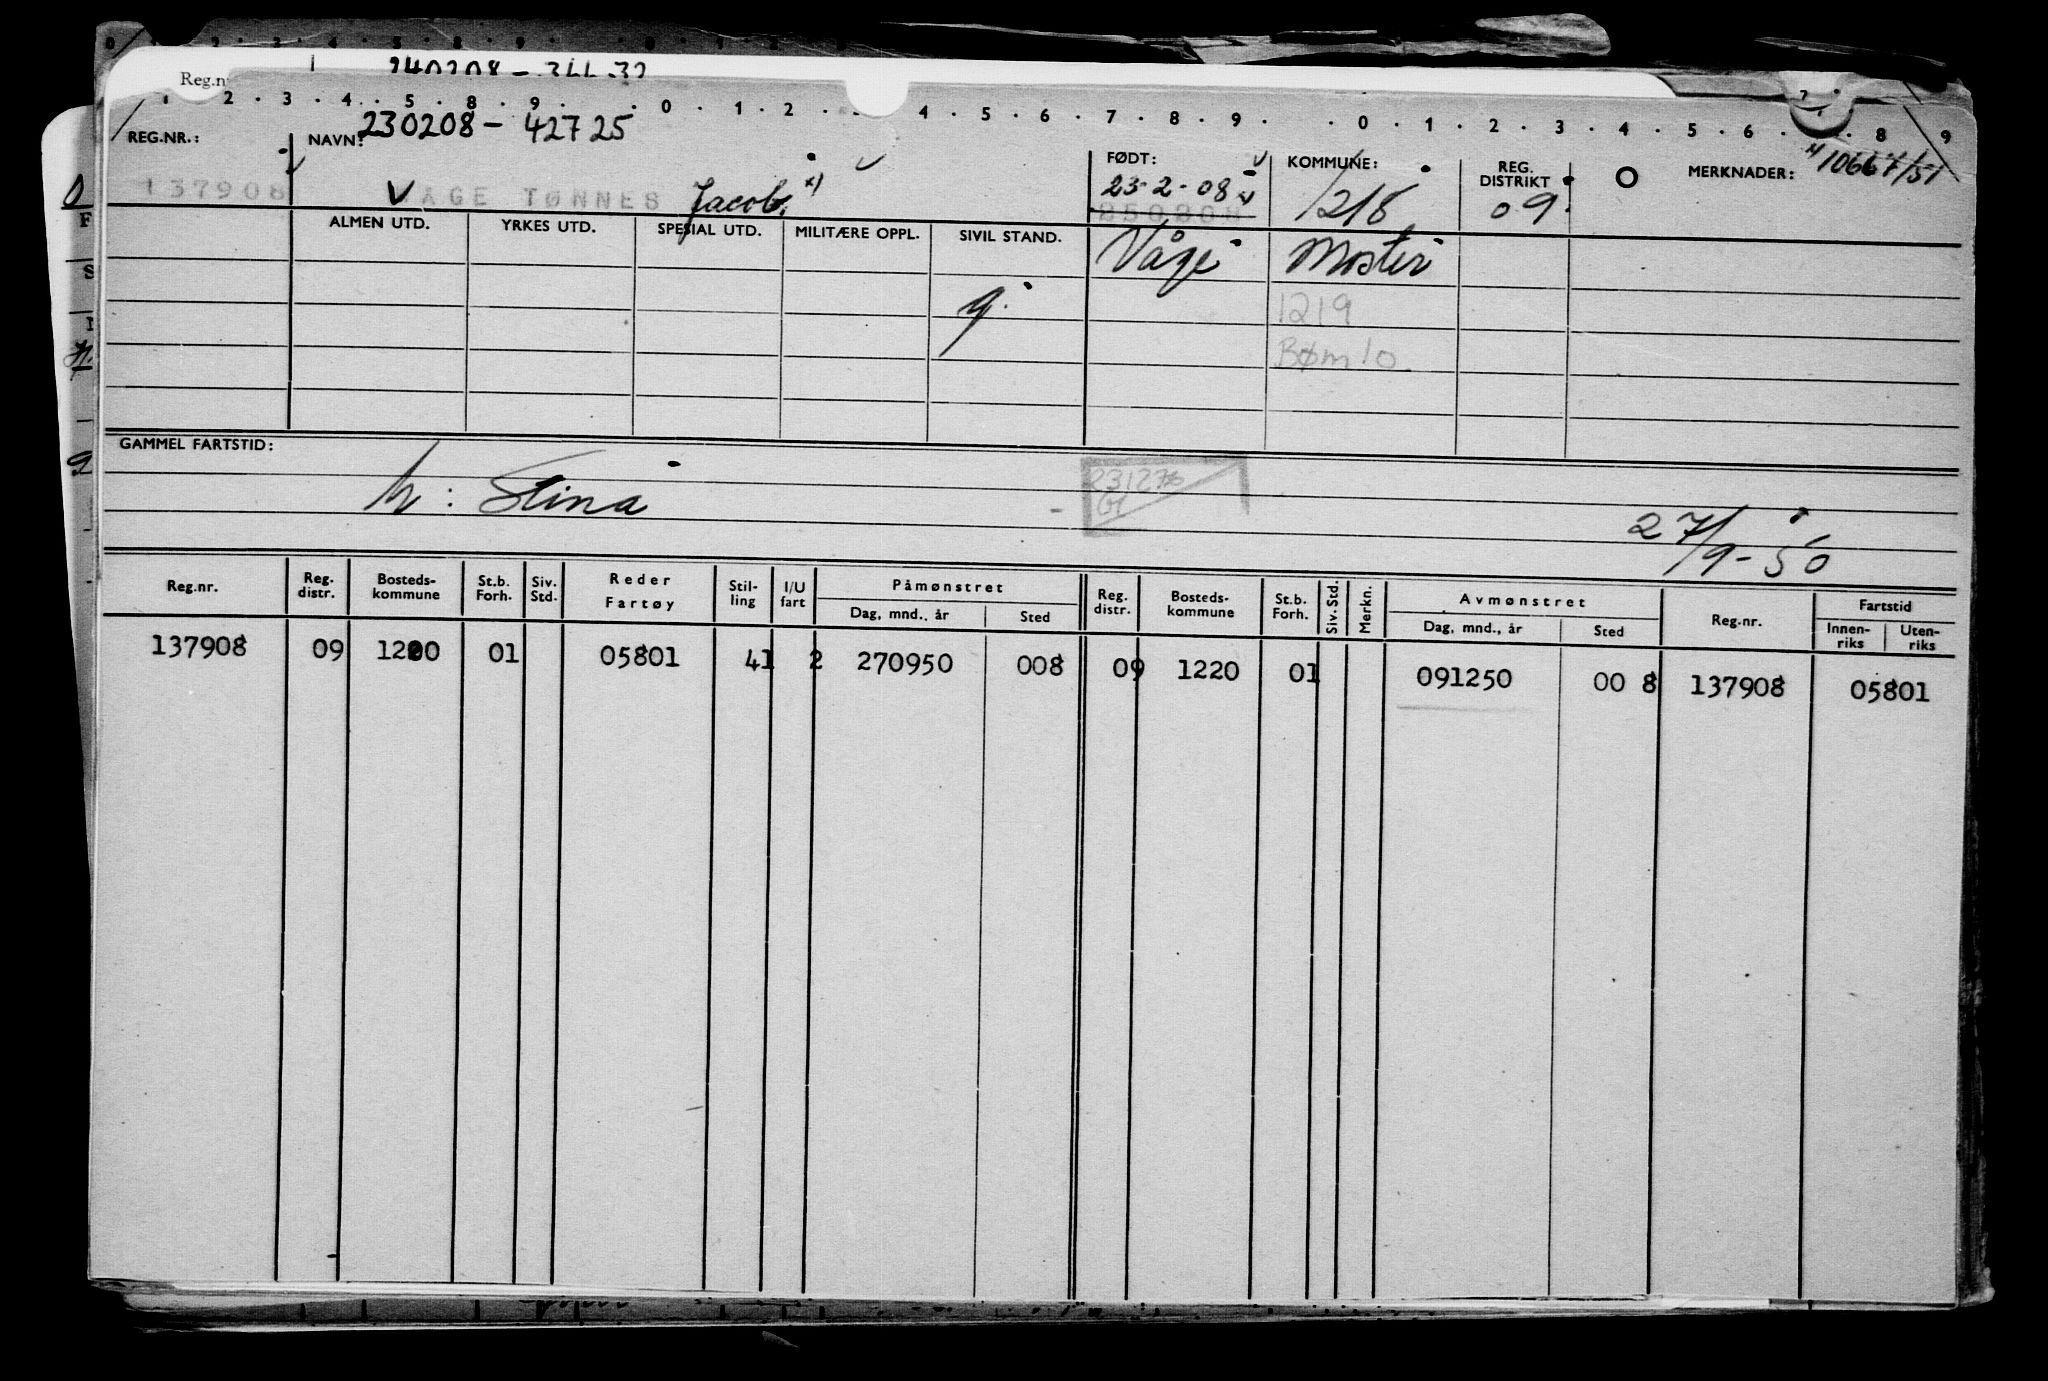 Reg.n
240208 - 344 32
1 . 2 . 3 . 4 . 5 . 8 . 9 . . 0 . 1 . 2 . 3 4 . 5 . 6 . 7 . 8 . 9 . . 0 . 1 . 2 . 3 . 4 . 5 . 6 . 7 8 9
REG.NR.: NAVN: 230208 - 42725 FØDT: KOMMUNE: REG. DISTRIKT O MERKNADER: 10667/51
137908 VÅGE TØNNES Jacob. x) 23-2-08 x) 1218 09
250208
ALMEN UTD. YRKES UTD. SPESIAL UTD. MILITÆRE OPPL. SIVIL STAND. Våge Moster
g. 1219
Bømlo
GAMMEL FARTSTID:
h: Stina 231276
27/9-50
Reg.nr. Reg. distr. Bosteds- kommune St.b. Forh. Siv. Std. Reder Fartøy Stil- ling I/U fart Påmønstret Reg. distr. Bosteds- kommune St.b. Forh. Siv. Std. Merkn. Avmønstret Reg.nr. Fartstid
Dag, mnd., år Sted Dag, mnd., år Sted Innen- riks Uten- riks
137908 09 1220 01 05801 41 2 270950 008 09 1220 01 091250 00 8 137908 05801